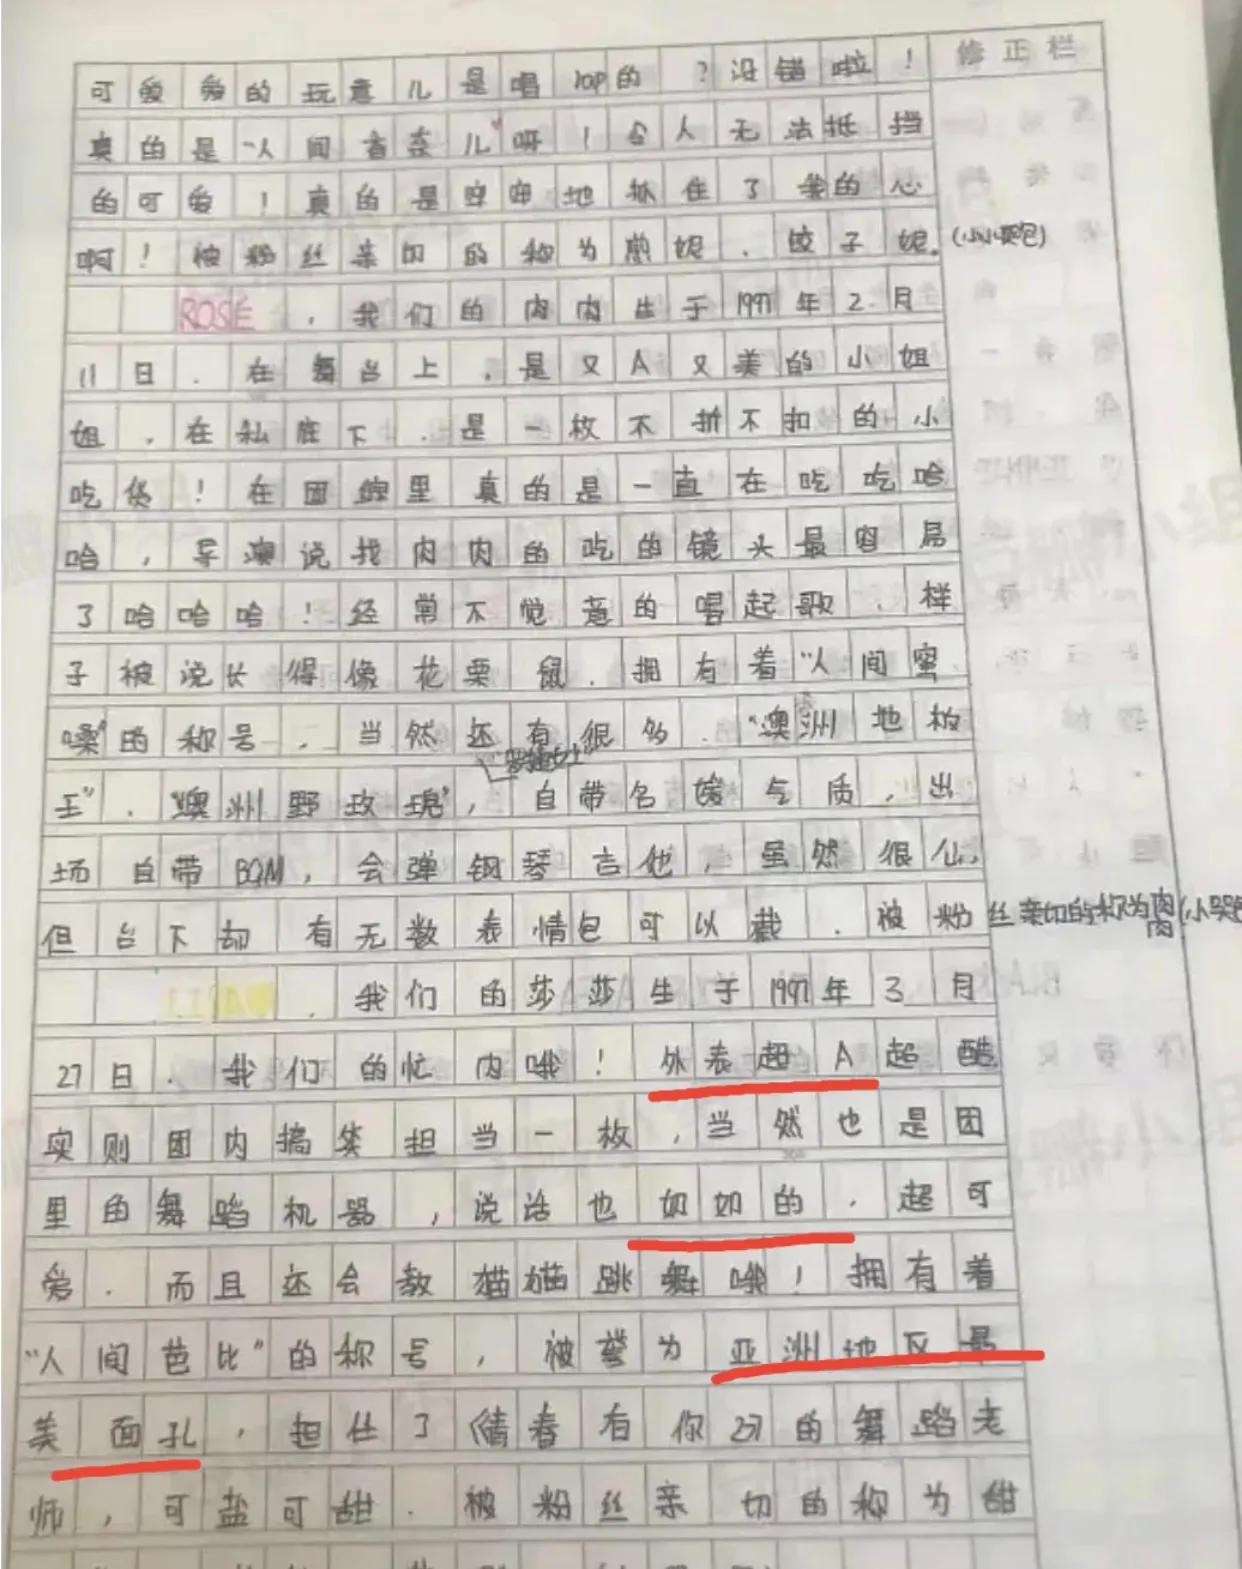 可爱爱的玩意儿是唱rap的？没错啦！
修正栏
真的是"人间香奈儿"呀！令人无法抵挡
的可爱！真的是牢牢地抓住了我的心
啊！被粉丝亲切的称为煎妮、饺子妮。(小小哭包)
ROSÉ，我们的肉肉生于1997年2月
11日．在舞台上，是又A又美的小姐
姐，在私底下．是一枚不折不扣的小
吃货！在团综里真的是一直在吃吃哈
哈，导演说找肉肉的吃的镜头最容易
了哈哈哈！经常不觉意的唱起歌．样
子被说长得像花栗鼠．拥有着"人间蜜
嗓"的称号．当然还有很多．"澳洲地柏
王"．"澳洲野玫瑰"，自带名媛气质，出
场自带BGM，会弹钢琴吉他，虽然很仙，
但台下却有无数表情包可以截．被粉丝亲切的称为肉肉(小哭包
，我们的莎莎生于1997年3月
27日．我们的忙内哦！外表超A超酷
实则团内搞笑担当一枚，当然也是团
里的舞蹈机器，说话也奶奶的．超可
爱．而且还会教猫猫跳舞哦！拥有着
"人间芭比"的称号，被誉为亚洲地区最
美面孔，担任了《青春有你2》的舞蹈老
师，可盐可甜．被粉丝亲切的称为甜